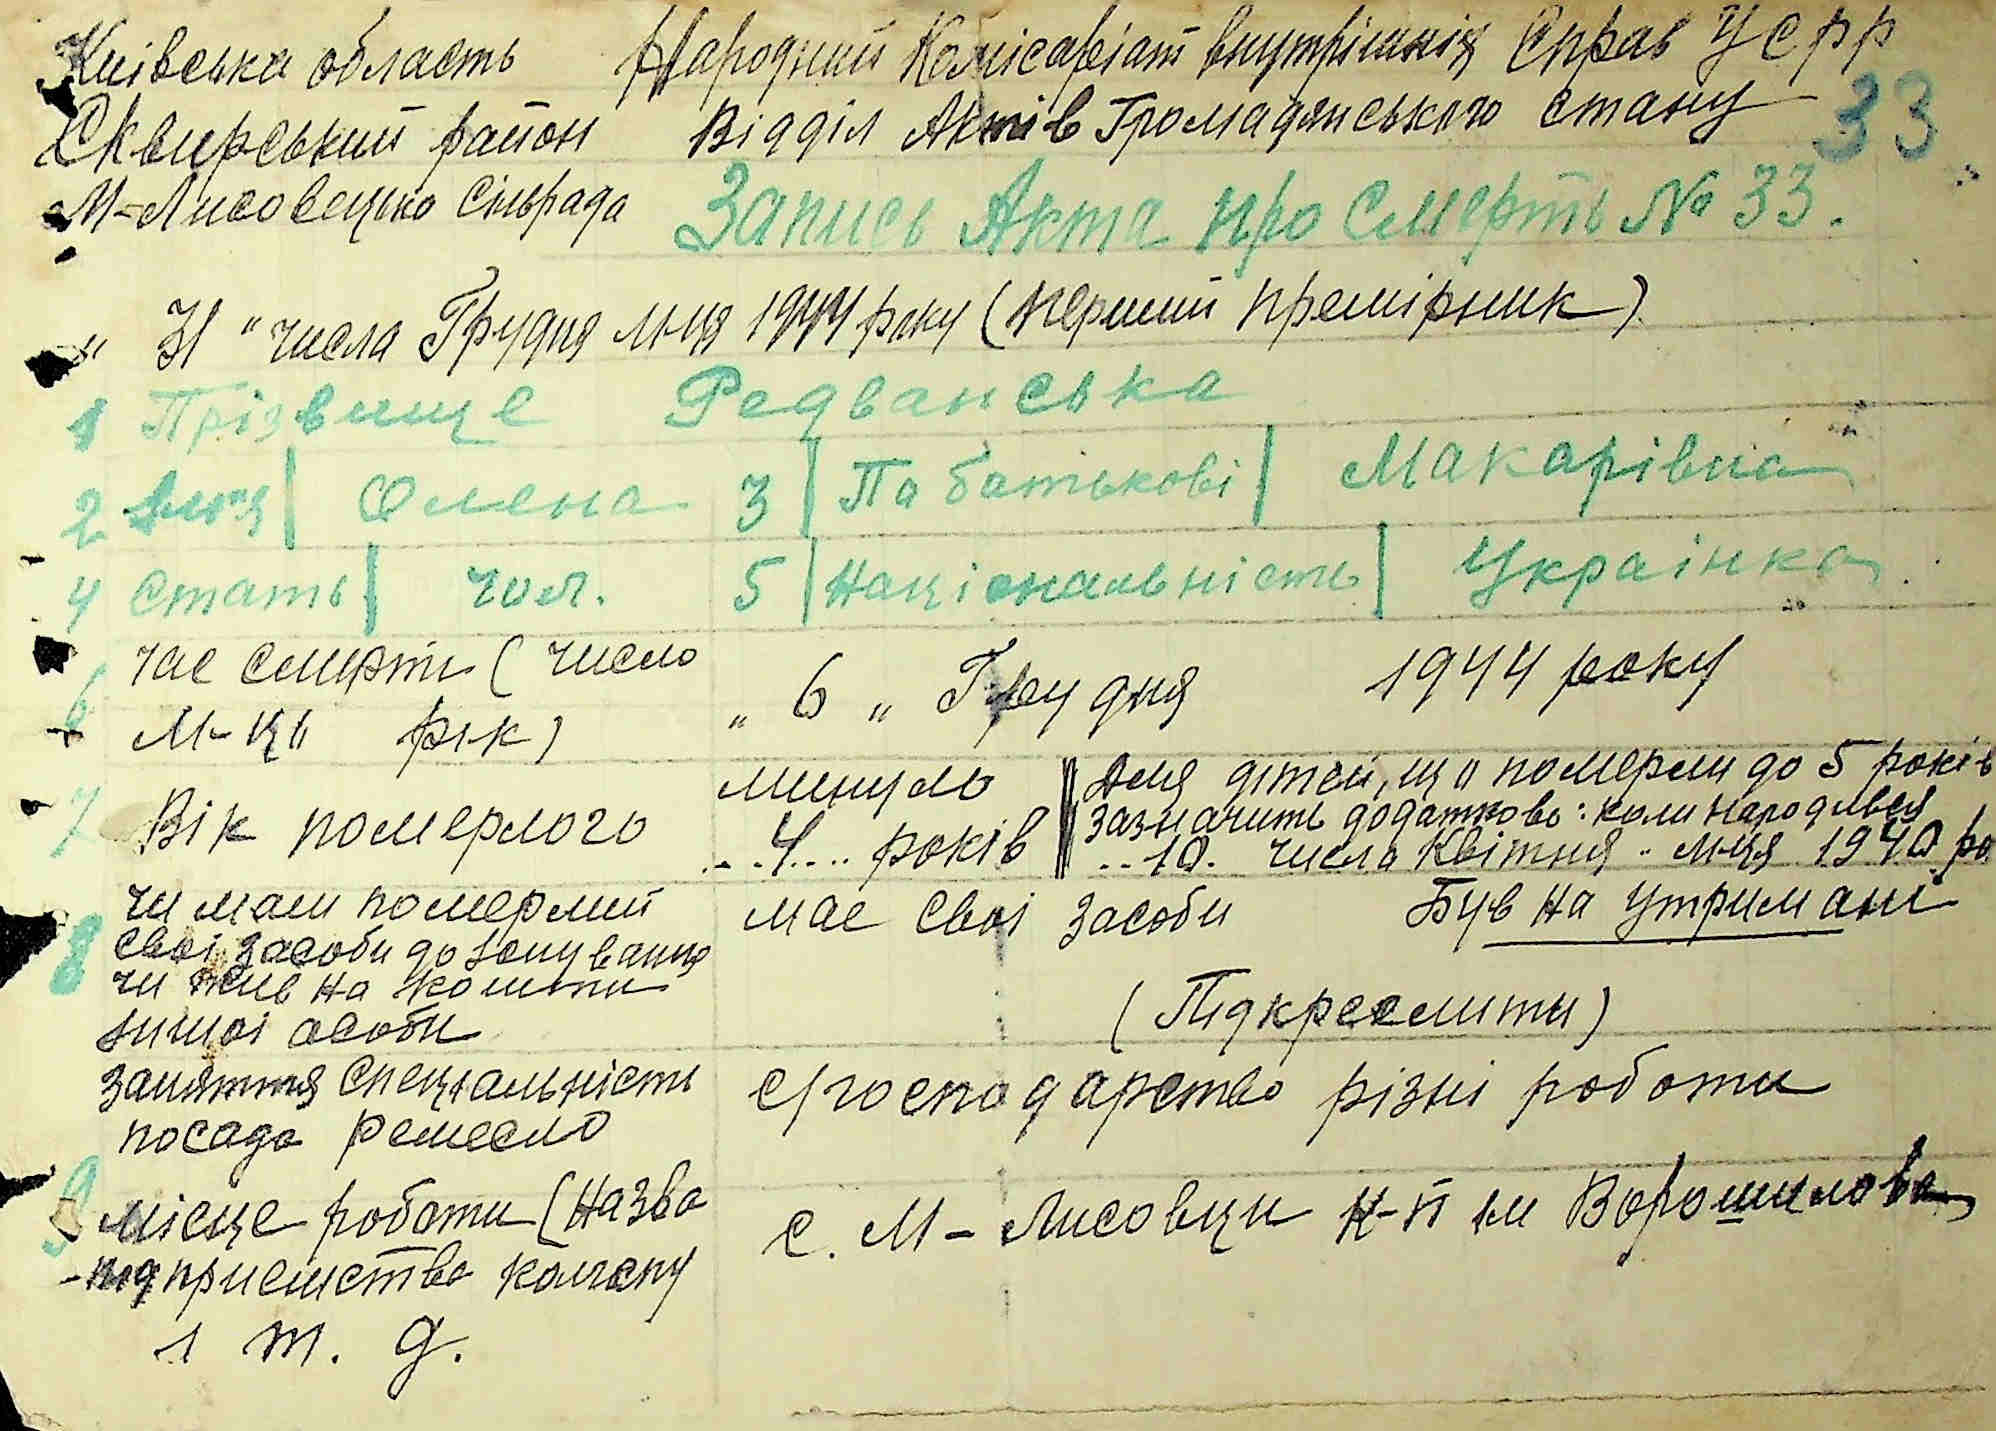 Київська область Народний Комісаріат внутрішніх Справ УСРР
Сквирський район Відділ Актів Громадянського стану 33
М-Лисовецько Сільрада Запись Акта про Смерть № 33.
" 31 " числа Грудня м-ця 1944 року (перший премірник)
1 Прізвище Редванська
2 Імя Олена 3 По батькові Макарівна
4 Стать чол. 5 Національність Українка
6 час смерти (число " 6 " Грудня 1944 року
м-ць рік)
7 Вік померлого минуло 4 років Для дітей, що померли до 5 років
зазначить додатково: коли народився
10. числа Квітня м-ця 1940 ро
8 чи мали померлий має свої засоби Був на утримані
свої засоби до існування
чи жив на кошти (Підкреслити)
іншої особи
заняття спеціальність с/господарство різні роботи
посада ремесло
9 місце роботи (назва с. М-Лисовци к-п ім Ворошилова
підприємства колгоспу
і т. д.